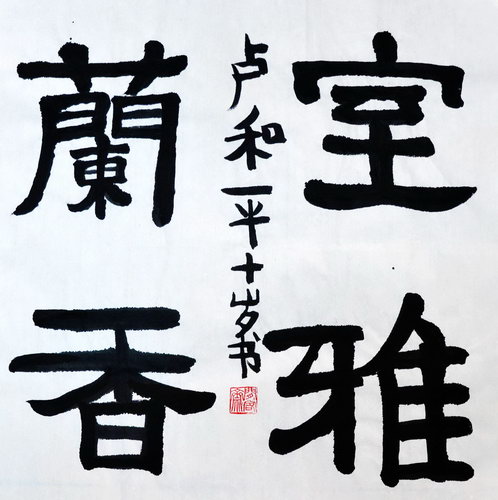 室雅
蘭香
卢和一平十岁书